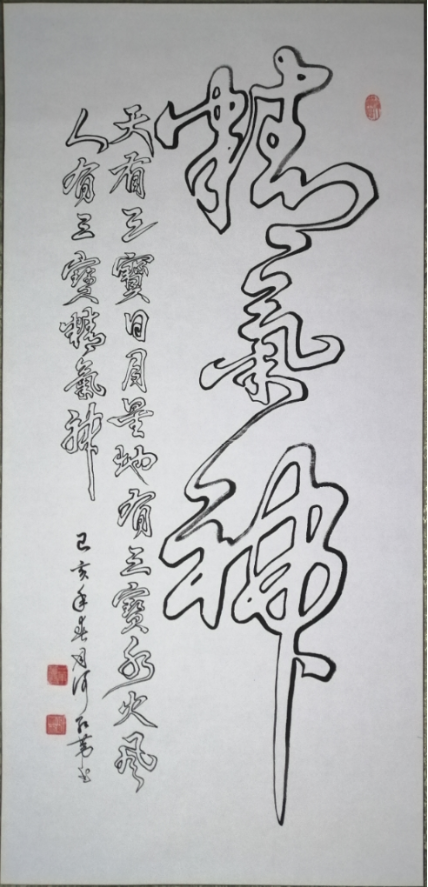 精氣神
天有三寶日月星地有三寶水火風
人有三寶精氣神
己亥年春月河石葦书